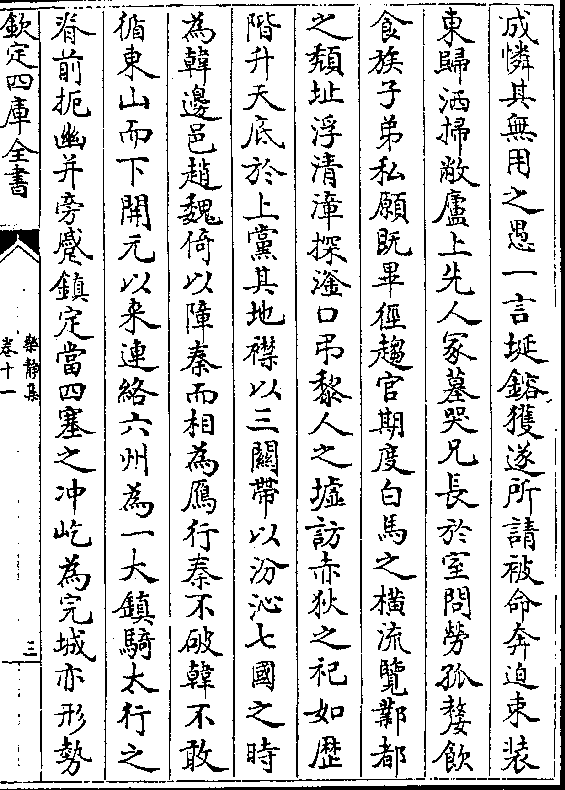 成憐其無用之愚一言埏鎔獲遂所請被命奔迫束装
東歸洒掃敝廬上先人冢墓哭兄長於室問勞孤嫠飲
食族子弟私願既畢徑趨官期度白馬之横流覽鄴都
之頽址浮清漳探滏口弔黎人之墟訪赤狄之祀如歴
階升天底於上黨其地襟以三關帶以汾沁七國之時
為韓邊邑趙魏倚以障秦而相為鴈行秦不破韓不敢
循東山而下開元以来連絡六州為一大鎮騎太行之
脊前扼幽并旁蹙鎮定當四塞之冲屹為完城亦形勢
欽定四庫全書
樂静集
卷十一
三